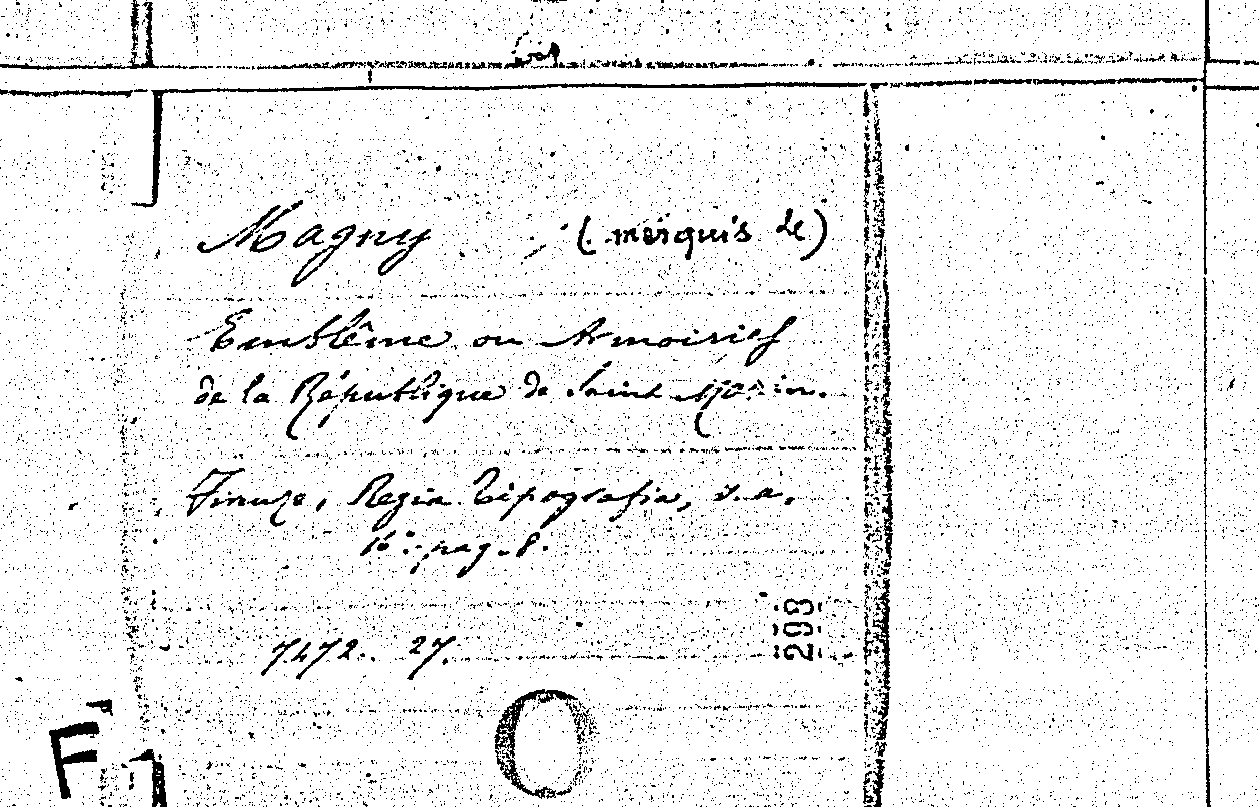 Magny (marquis de)
Emblême ou Armoiries
de la République de Saint Marin.
Firenze, Regia Tipografia, s. a.
16.° pag. 8.
7472. 27.
298
F